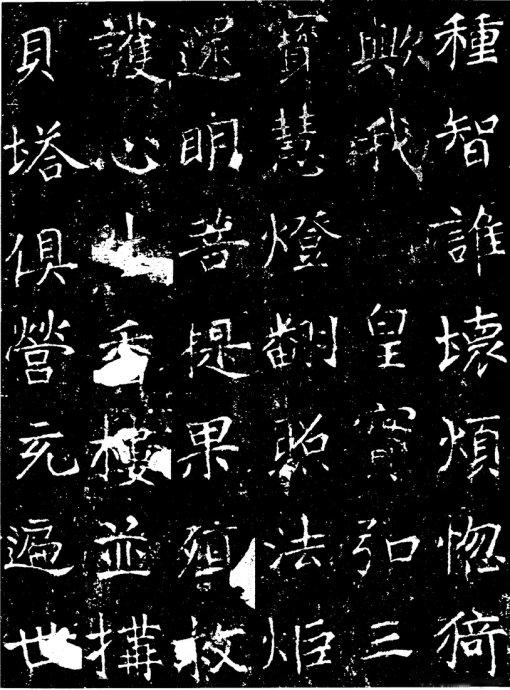 種智誰壞煩惚猗
歟我皇實弘三
寶慧燈翻照法炬
還明菩提果殖救
護心生香樓並搆
貝塔俱營充遍世